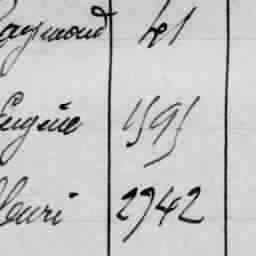 Raymond 41
Eugène 1595
Henri 2942